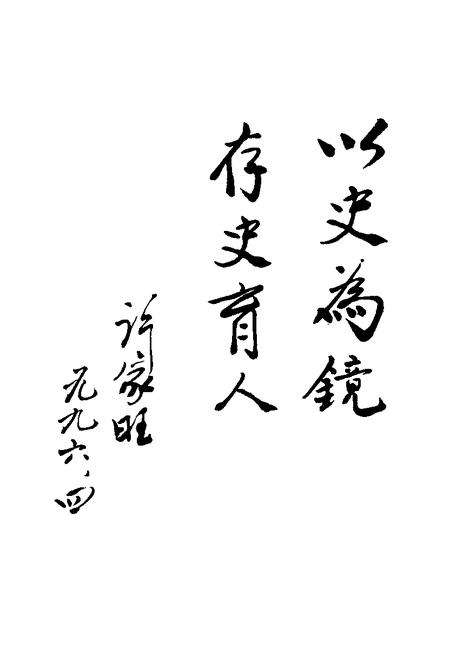 以史為鏡
存史育人
许家旺
一九九六、四